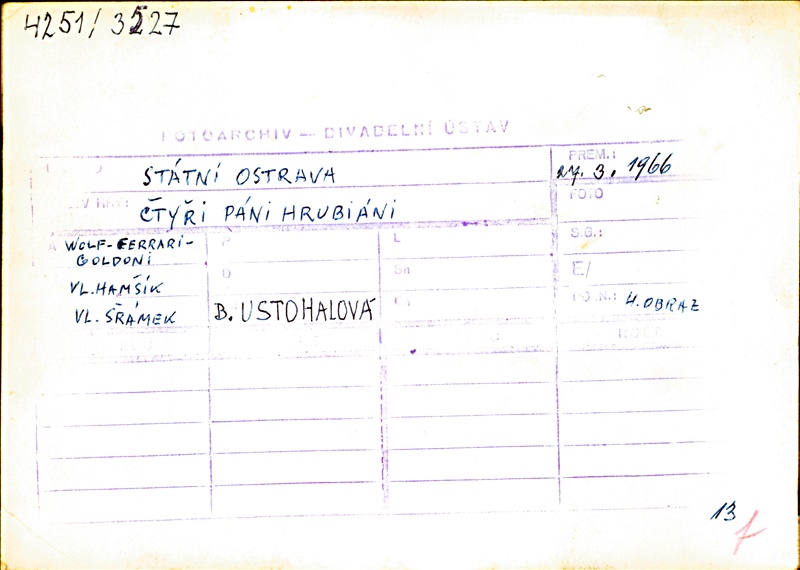 4251/3527
FOTOARCHIV — DIVADELNÍ ÚSTAV
STÁTNÍ OSTRAVA
PREM.: 27. 3. 1966
ČTYŘI PÁNI HRUBIÁNI
FOTO
WOLF-FERRARI-
GOLDONI
L
S.G.:
VL. HAMŠÍK
D
Sn
E/
VL. ŠRÁMEK
B. USTOHALOVÁ
PO.N.: 4. OBRAZ
13